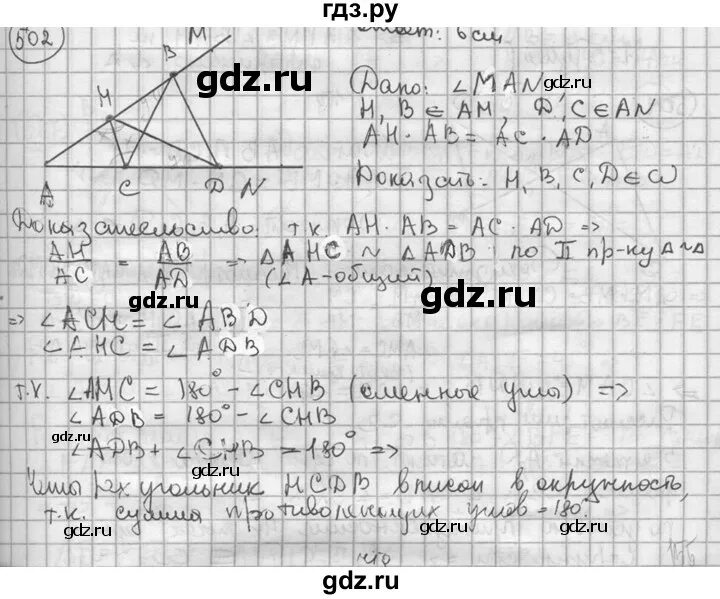 гдз.ру
502
ответ: 6 см
M
B
H
A
C
D
N
gdz.ru
Дано: ∠MAN,
H, B ∈ AM, D, C ∈ AN
AH · AB = AC · AD
Доказать: H, B, C, D ∈ ω
Доказательство: т.к. AH · AB = AC · AD =>
AH/AC = AB/AD => △AHC ~ △ADB по II пр-ку △~△
(∠A-общий)
gdz.ru
=> ∠ACH = ∠ABD
∠AHC = ∠ADB
т.к. ∠AHC = 180° - ∠CHB (смежные углы) =>
∠ADB = 180° - ∠CHB
gdz.ru
gdz.ru
∠ADB + ∠CHB = 180° =>
Четырехугольник HCDB вписан в окружность,
т.к. сумма противолежащих углов = 180°.
gdz.ru
gdz.ru
чтд
gdz.ru